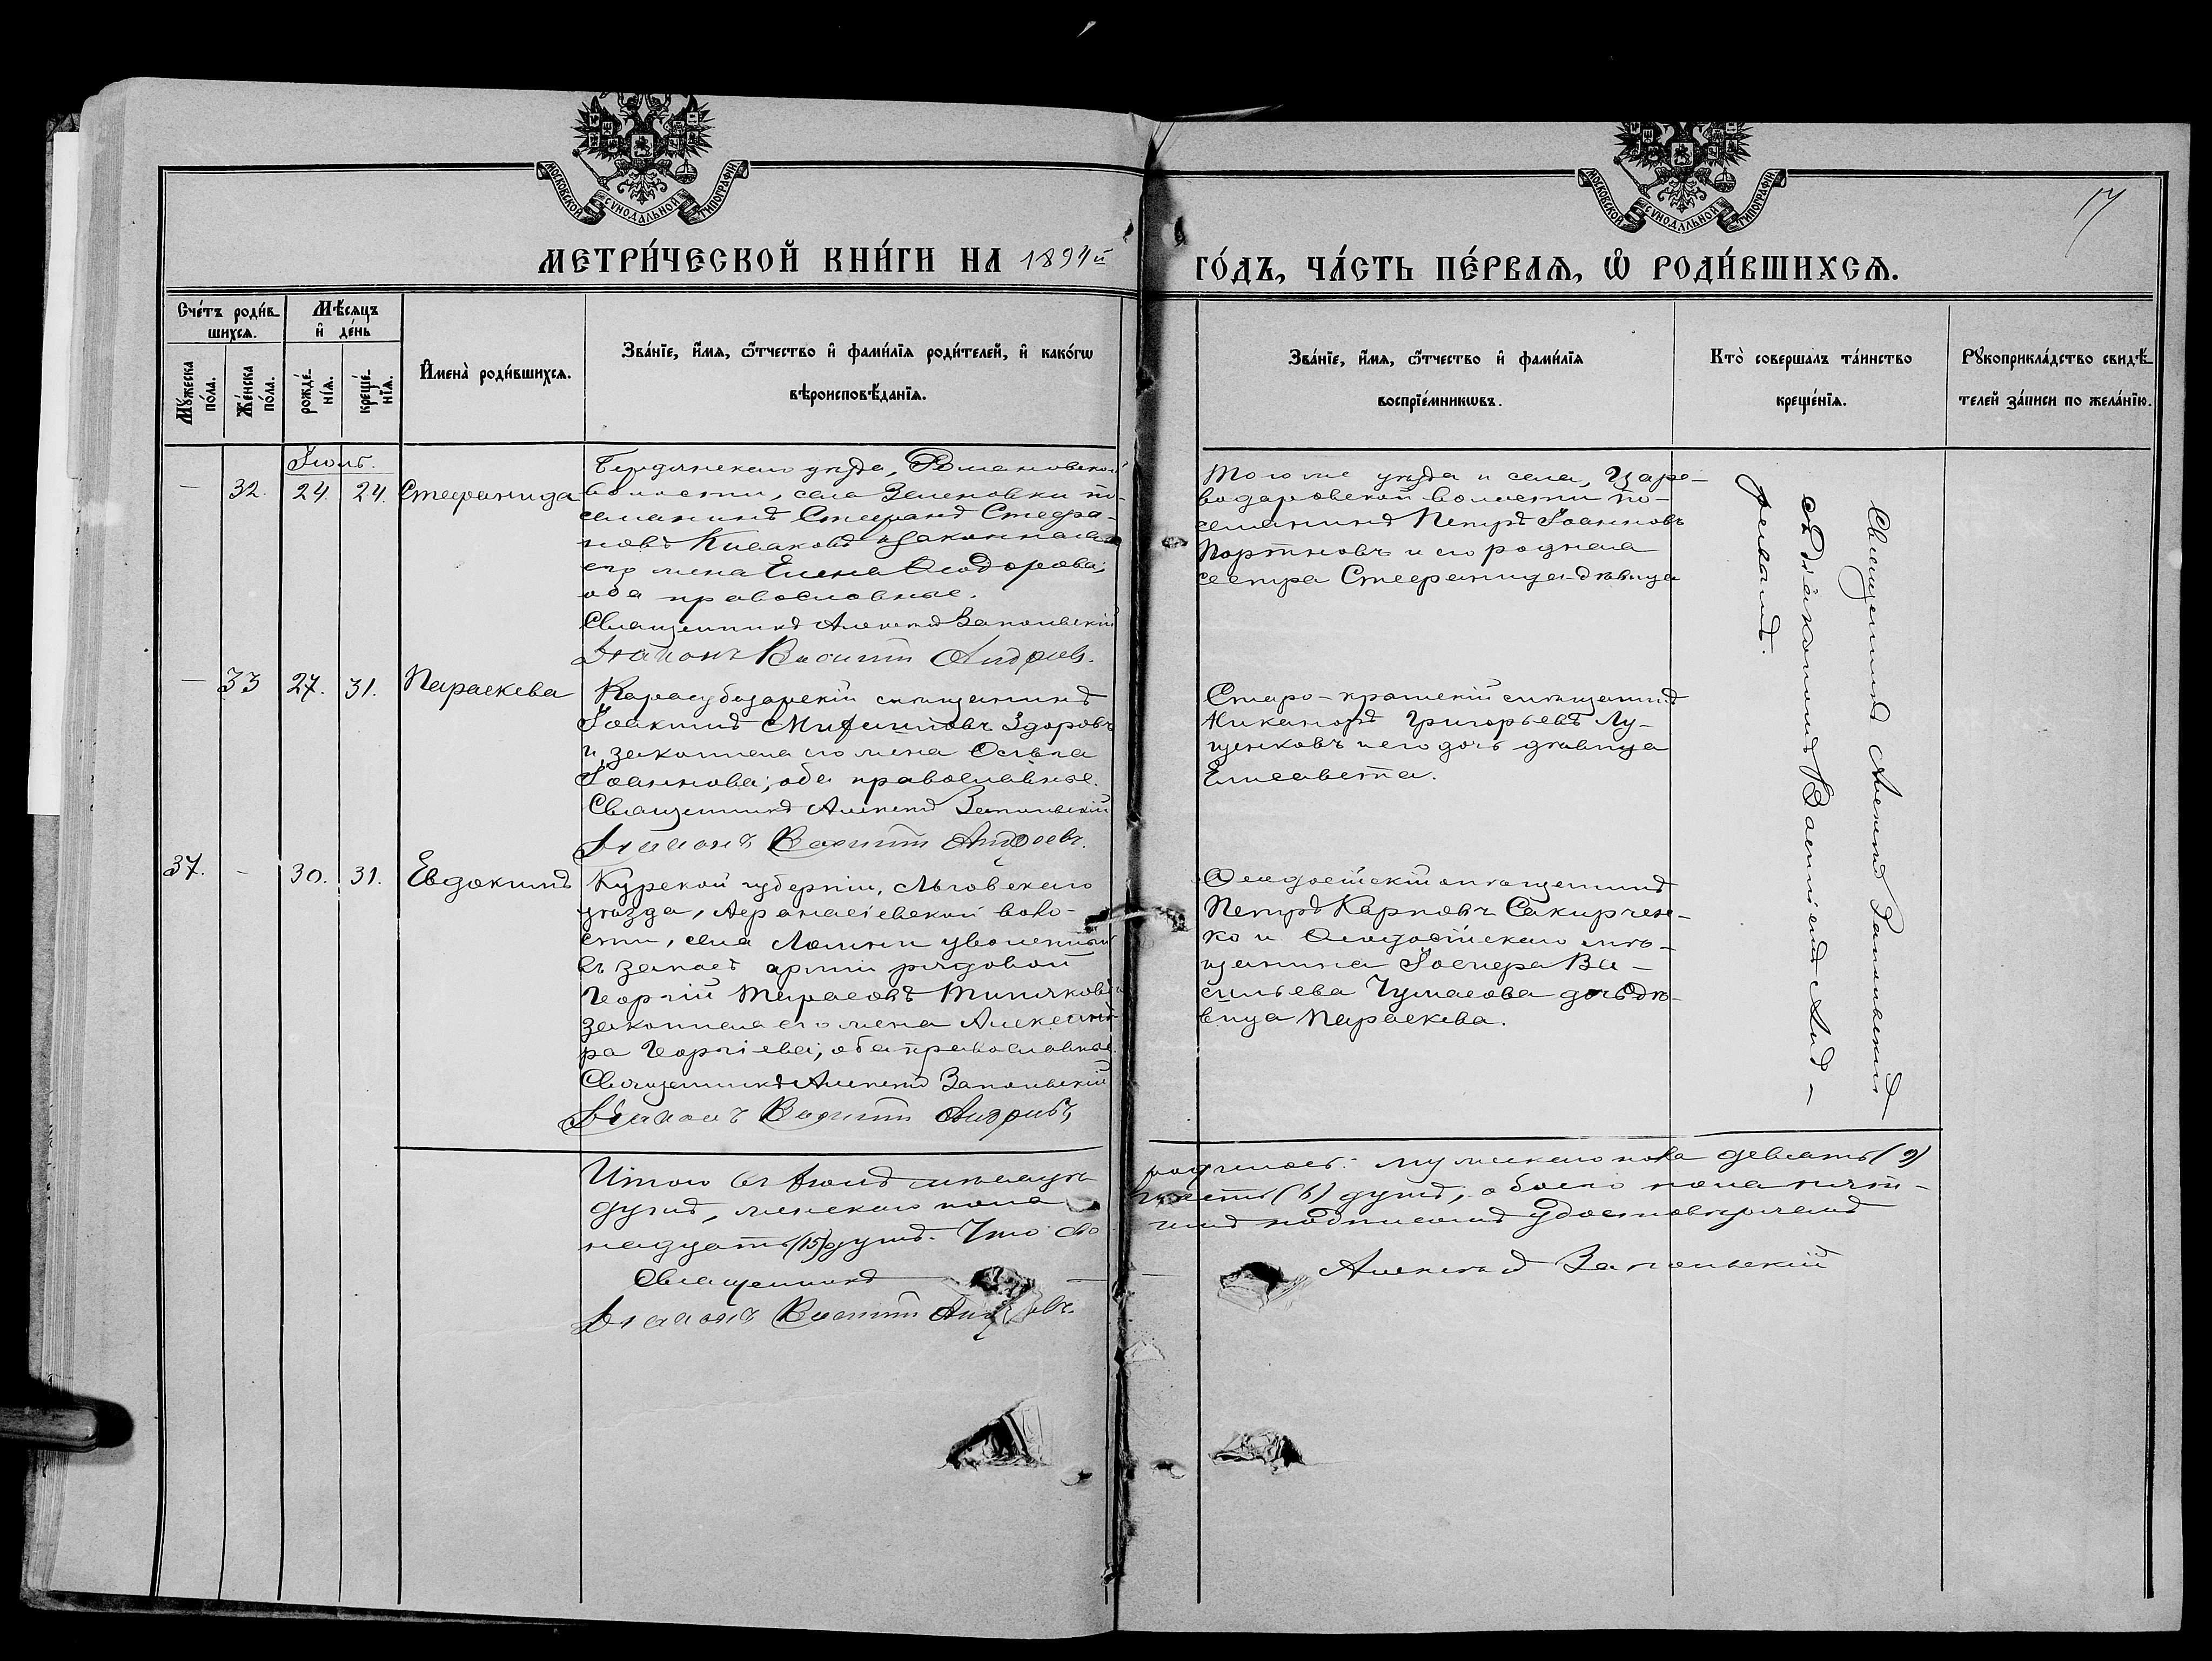 МОСКОВСКОЙ СѴНОДАЛЬНОЙ ТИПОГРАФІИ.
МОСКОВСКОЙ СѴНОДАЛЬНОЙ ТИПОГРАФІИ.
17
МЕТРИ́ЧЕСКОЙ КНИ́ГИ НА 1894й
ГО́ДЪ, ЧА́СТЬ ПЕ́РВАЯ, Ѡ҆ РОДИ́ВШИХСЯ.
Сче́тъ роди́в-
шихся.
Мꙋ́жеска
по́ла.
Же́нска
по́ла.
Мѣ́сяцъ
и҆ де́нь
рожде́-
нїя.
креще́-
нїя.
И҆мена̀ роди́вшихся.
Зва́нїе, и҆́мя, ѻ҆́тчество и҆ фами́лїя роди́телей, и҆ како́гѡ
вѣроисповѣ́данїя.
Зва́нїе, и҆́мя, ѻ҆́тчество и҆ фами́лїя
воспрїе́мникѡвъ.
Кто̀ соверша́лъ та́инство
креще́нїя.
Рꙋкоприкла́дство свидѣ́-
телей за́писи по жела́нїю.
Іюль.
— 32. 24. 24. Стефанида
Бердянскаго уѣзда, Романовской
волости, села Зеленовки по-
селянинъ Стефанъ Стефа-
новъ Кисаковъ и законная
его жена Елена Ѳеодорова;
оба православные.
Священникъ Алексій Запольскій
Діаконъ Василій Андреевъ.
Того же уѣзда и села, Царе-
водаровской волости по-
селянинъ Петръ Іоанновъ
Портновъ и его родная
сестра Стефанида дѣвица
— 33 27. 31. Параскева
Карасубазарскій мѣщанинъ
Іоакимъ Здоровъ
и законная его жена Ольга
Іоаннова; оба православные.
Священникъ Алексій Запольскій
Діаконъ Василій Андреевъ.
Старо-крымскій мѣщанинъ
Никаноръ Григорьевъ Лу-
ценковъ и его дочь дѣвица
Елисавета.
37. – 30. 31. Евдокимъ
Курской губерніи, Льговскаго
уѣзда, Афанасіевской воло-
сти, села уволенный
въ запасъ арміи рядовой
Георгій Тарасовъ
законная его жена Александ-
ра Георгіева; оба православные.
Священникъ Алексій Запольскій
Діаконъ Василій Андреевъ
Ѳеодосійскій мѣщанинъ
Петръ Карповъ Сакирчен-
ко и Ѳеодосійскаго мѣ-
щанина Іосифа Ва-
сильева Чумасова дочь дѣ-
вица Параскева.
Священникъ Алексій Запольскій
съ Діакономъ Василіемъ Анд-
реевымъ.
Итого въ Іюлѣ мѣсяцѣ родилось: мужескаго пола девять (9)
душъ, женскаго пола шесть (6) душъ, обоего пола пят-
надцать (15) душъ. Что подписомъ удостовѣряемъ
Священникъ — Алексій Запольскій
Діаконъ Василій Андреевъ.